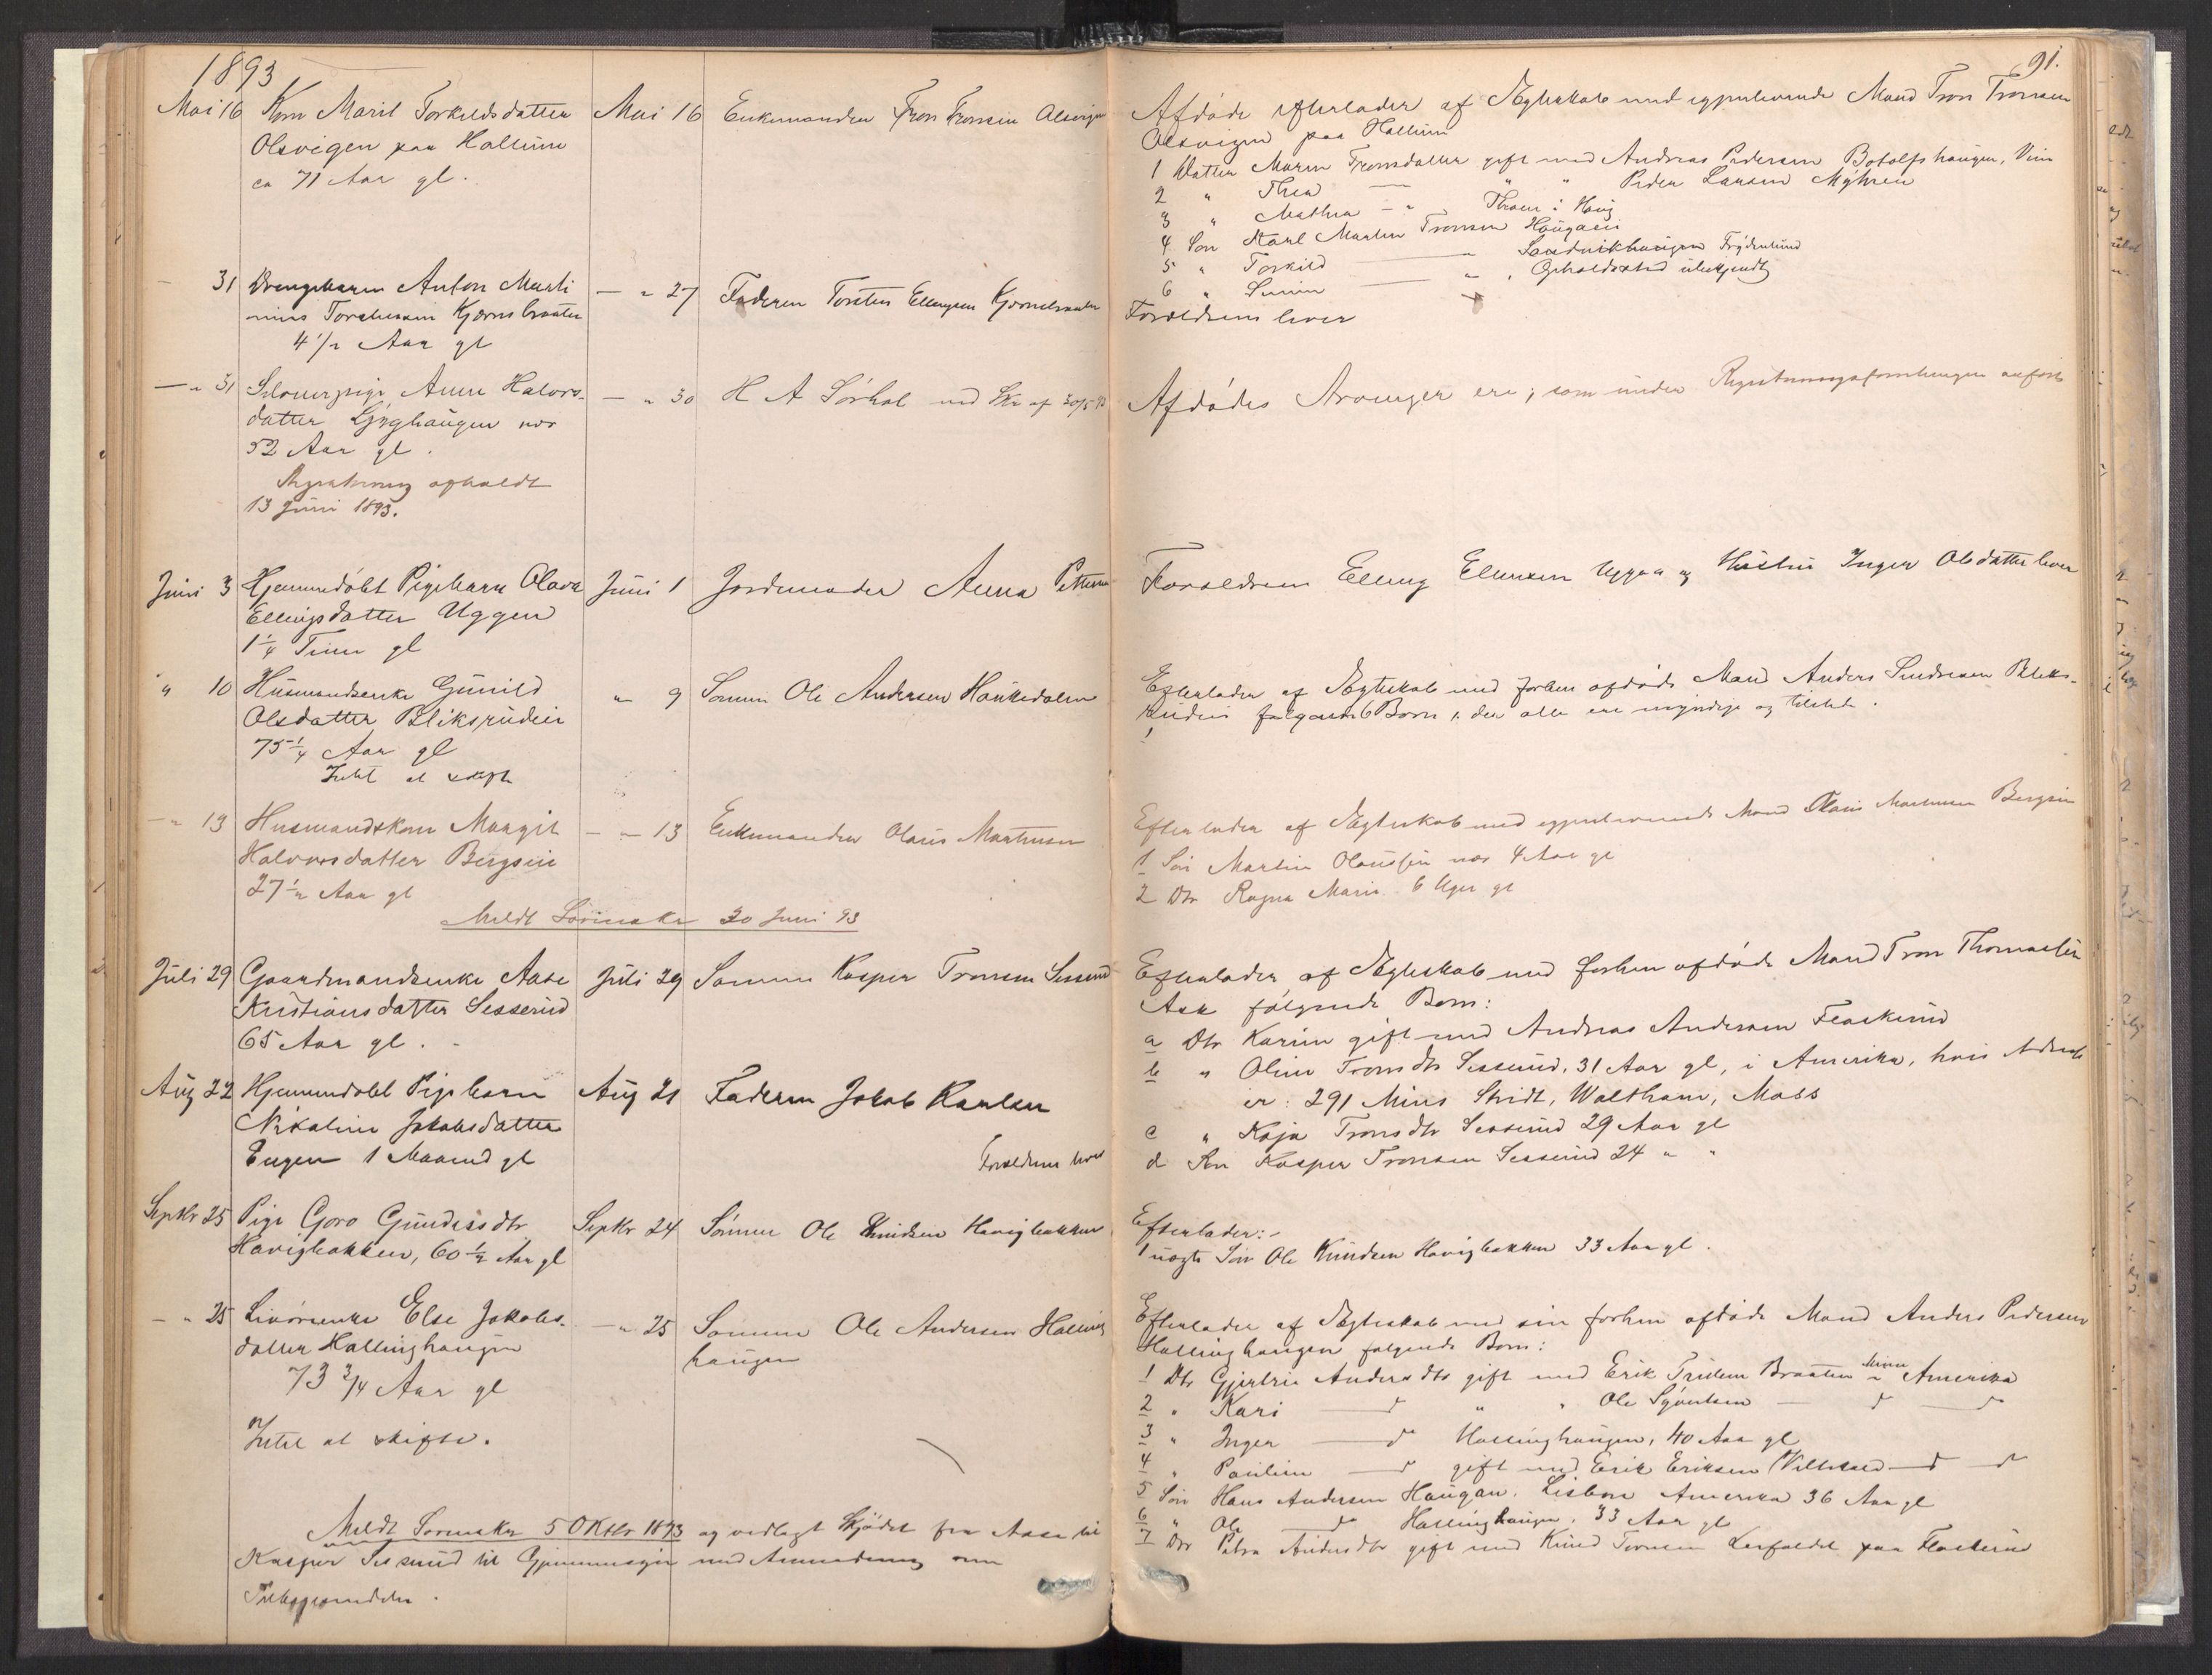 1893
91.
Mai 16 Kone Marit Torkildsdatter
Olsvigen paa Hallum
ca 71 Aar gl.
Mai 16 Enkemanden Tron Tronsen Olsvigen
Afdøde efterlader af Ægteskab med Mand Tron Tronsen
Olsvigen paa Hallum
1 Datter Maren Tronsdatter gift med Andreas Pedersen Botolfshaugen,
2 " Thea — " " Peder Larsen Myhren
3 " Mathea — " i Haug
4 Søn Karl Martin Tronsen Haugan
5 " Torkild — " Frydenlund
6 " — " Opholdssted ubekjendt
31 Drengebarn Anton Marti
nius Kjærnsbraaten
4 1/2 Aar gl
— " 27 Faderen Torsten Ellingsen Kjærnsbraaten
Forældrene lever
— " 31 Pige Anne Halvors-
datter
52 Aar gl.
Registrering afholdt
13 Juni 1893.
— " 30 H A Sørhol med Skr af 30/5 93
Afdødes Arvinger ere, som under Registreringsforretningen anført
Juni 3 Hjemmedøbt Pigebarn Olava
Ellingsdatter Uggen
1 1/4 Time gl
Juni 1 Jordmoder Anna
Forældrene Elling Ellingsen Uggen og Hustru Inger Olsdatter lever
" 10 Husmandsenke Gunild
Olsdatter Bliksrudeie
75 1/4 Aar gl
Intet at skifte
" 9 Sønnen Ole Andersen Haukedalen
Efterlader af Ægteskab med forhen afdøde Mand Anders Bliks-
rudeie følgende 6 Børn, der alle ere myndige og tilstede.
1
— " 13 Husmandskone Margit
Halvorsdatter Bergseie
27 1/2 Aar gl
— " 13 Enkemanden Olaus Martinsen
Efterlader af Ægteskab med Mand Olaus Martinsen Bergseie
1 Søn Martin Olaussen 4 Aar gl
2 Dtr Ragna Marie 6 Uger gl
Meldt Sorenskr 30 Juni 93
Juli 29 Gaardmandsenke Aase
Kristiansdatter Sesserud
65 Aar gl. -
Juli 29 Sønnen Kasper Tronsen Sesserud
Efterlader af Ægteskab med forhen afdøde Mand Tron Thomassen
Ask følgende Børn:
a Dtr Karine gift med Andreas Andersen Flaskerud
b " Oline Tronsdtr Sesserud, 31 Aar gl, i Amerika, hvis Adresse
er: 291 Stridt, Waltham, Mass
c " Kaja Tronsdtr Sesserud 29 Aar gl
d Søn Kasper Tronsen Sesserud 24 " "
Aug 22 Hjemmedøbt Pigebarn
Nikoline Jakobsdatter
Engen 1 Maaned gl
Aug 21 Faderen Jakob Karlsen
Forældrene lever
Septbr 25 Pige Goro Gundersdtr
Havigbakken, 60 1/2 Aar gl
Septbr 24 Sønnen Ole Knudsen Havigbakken
Efterlader:-
1 uægte Søn Ole Knudsen Havigbakken 33 Aar gl.
— " 25 Else Jakobs-
datter Hallinghaugen
73 3/4 Aar gl
Intet at skifte.
— " 25 Sønnen Ole Andersen Halling
haugen
Efterlader af Ægteskab med sin forhen afdøde Mand Anders Pedersen
Hallinghaugen følgende Børn:
1 Dtr Gjertrie Andersdtr gift med Erik Braaten i Amerika
2 " Kari — d " " Ole — d — d
3 " Inger — d Hallinghaugen, 40 Aar gl
4 " Pauline — d gift med Erik Eriksen — d — d
5 Søn Hans Andersen Haugan, Lisbon Amerika 36 Aar gl
6 " Ole — d Hallinghaugen, 33 Aar gl
7 Dtr Petra Andersdtr gift med Knud paa Flaskerud
Meldt Sorenskr 5 Oktbr 1893 og vedlagt Skjødet fra Aase til
Kasper Sesserud til Gjennemsyn med Anmodning om